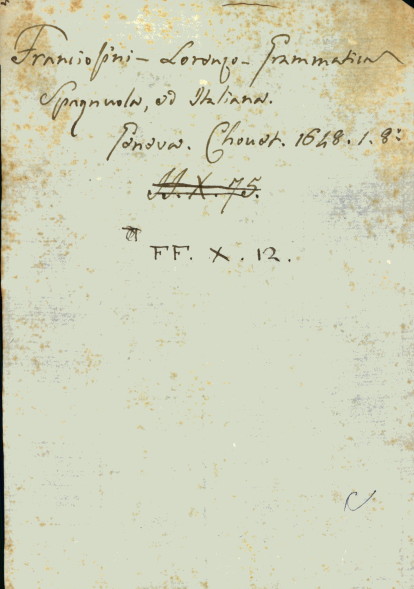 Franciosini - Lorenzo - Grammatica
Spagnuola, ed Italiana.
Geneva. Chouet. 1648. 1. 8º
M. X. 75.
FF. X. 12.